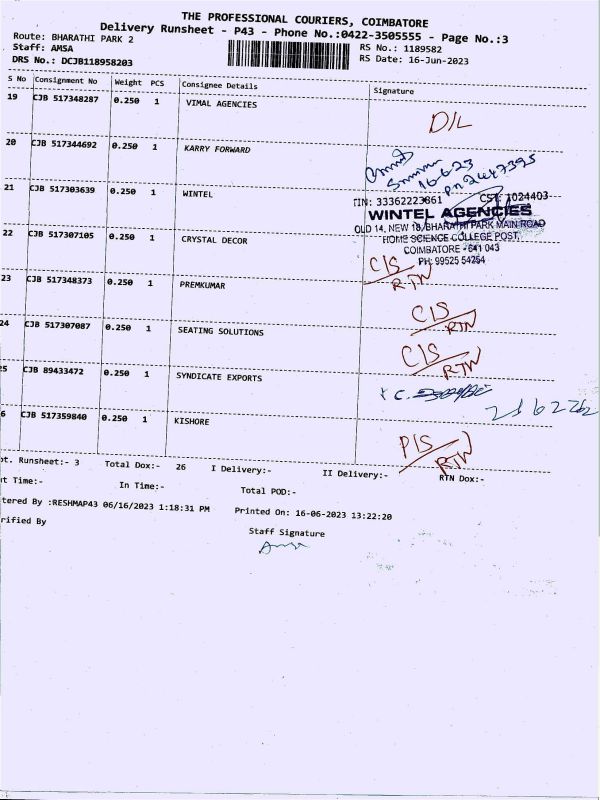 THE PROFESSIONAL COURIERS, COIMBATORE
Delivery Runsheet - P43 - Phone No.:0422-3505555 - Page No.:3
Route: BHARATHI PARK 2
RS No.: 1189582
Staff: AMSA
RS Date: 16-Jun-2023
DRS No.: DCJB118958203
S No Consignment No Weight PCS Consignee Details Signature
19 CJB 517348287 0.250 1 VIMAL AGENCIES
D/L
20 CJB 517344692 0.250 1 KARRY FORWARD
16-6-23
21 CJB 517303639 0.250 1 WINTEL
TIN: 33362223861 CST: 1024403
WINTEL AGENCIES
OLD 14, NEW 18, BHARATHI PARK MAIN ROAD
HOME SCIENCE COLLEGE POST,
COIMBATORE - 641 043
PH: 99525 54254
22 CJB 517307105 0.250 1 CRYSTAL DECOR
C/S
RTN
23 CJB 517348373 0.250 1 PREMKUMAR
C/S
RTN
24 CJB 517307087 0.250 1 SEATING SOLUTIONS
C/S
RTN
5 CJB 89433472 0.250 1 SYNDICATE EXPORTS
6 CJB 517359840 0.250 1 KISHORE
P/S
RTN
ot. Runsheet:- 3 Total Dox:- 26 I Delivery:- II Delivery:- RTN Dox:-
ut Time:- In Time:- Total POD:-
tered By :RESHMAP43 06/16/2023 1:18:31 PM Printed On: 16-06-2023 13:22:20
rified By
Staff Signature
Amsa